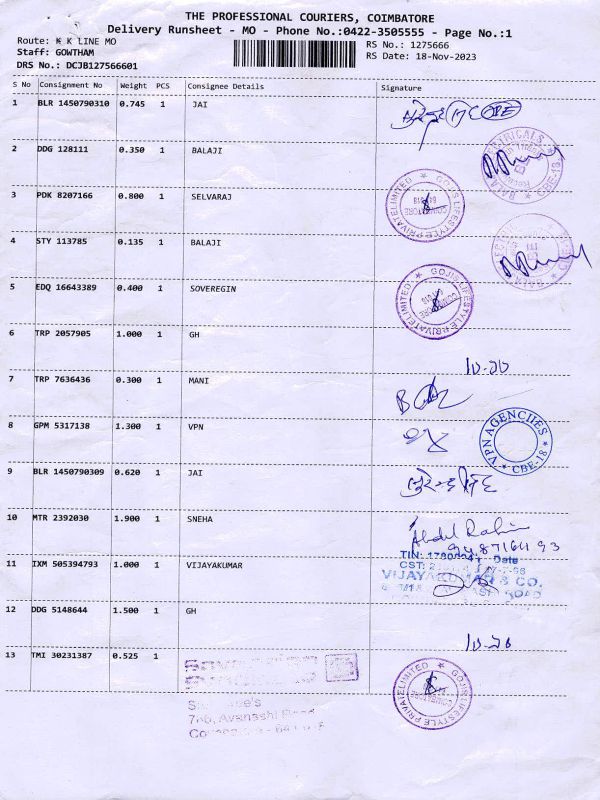 THE PROFESSIONAL COURIERS, COIMBATORE
Delivery Runsheet - MO - Phone No.:0422-3505555 - Page No.:1
Route: K K LINE MO
Staff: GOWTHAM
DRS No.: DCJB127566601
RS No.: 1275666
RS Date: 18-Nov-2023
S No Consignment No Weight PCS Consignee Details Signature
1 BLR 1450790310 0.745 1 JAI
2 DDG 128111 0.350 1 BALAJI
3 PDK 8207166 0.800 1 SELVARAJ
GOJIS LIFESTYLE PRIVATE LIMITED
4 STY 113785 0.135 1 BALAJI
5 EDQ 16643389 0.400 1 SOVEREGIN
GOJIS LIFESTYLE PRIVATE LIMITED
COIMBATORE
6 TRP 2057905 1.000 1 GH
7 TRP 7636436 0.300 1 MANI
8 GPM 5317138 1.300 1 VPN
VPN AGENCIIES
CBE-18
9 BLR 1450790309 0.620 1 JAI
10 MTR 2392030 1.900 1 SNEHA
Abdul Rahim
11 IXM 505394793 1.000 1 VIJAYAKUMAR
TIN:
Date
CST:
VIJAYAKUMAR & CO.
ROAD
12 DDG 5148644 1.500 1 GH
13 TMI 30231387 0.525 1
Avanashi Road
GOJIS LIFESTYLE PRIVATE LIMITED
COIMBATORE